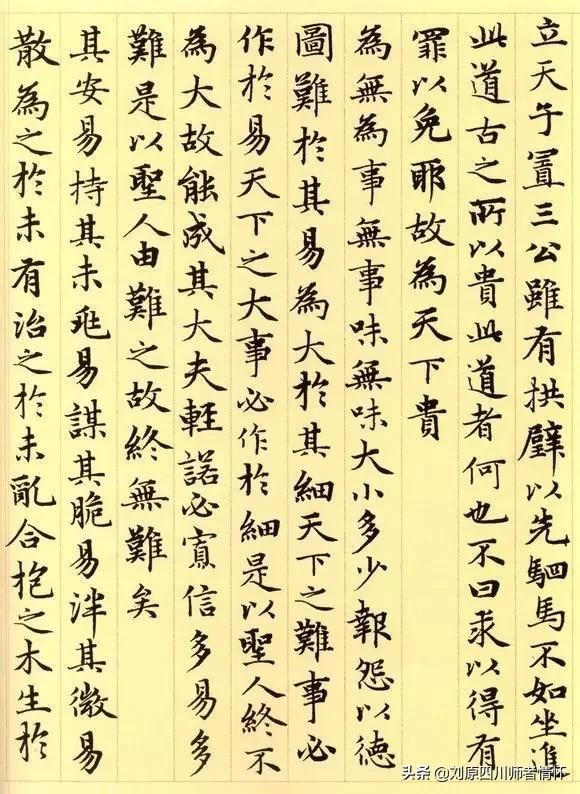 立天子置三公雖有拱璧以先駟馬不如坐進
此道古之所以貴此道者何也不曰求以得有
罪以免耶故為天下貴
為無為事無事味無味大小多少報怨以德
圖難於其易為大於其細天下之難事必
作於易天下之大事必作於細是以聖人終不
為大故能成其大夫輕諾必寡信多易多
難是以聖人由難之故終無難矣
其安易持其未兆易謀其脆易泮其微易
散為之於未有治之於未亂合抱之木生於
头条 @刘原四川师者情怀